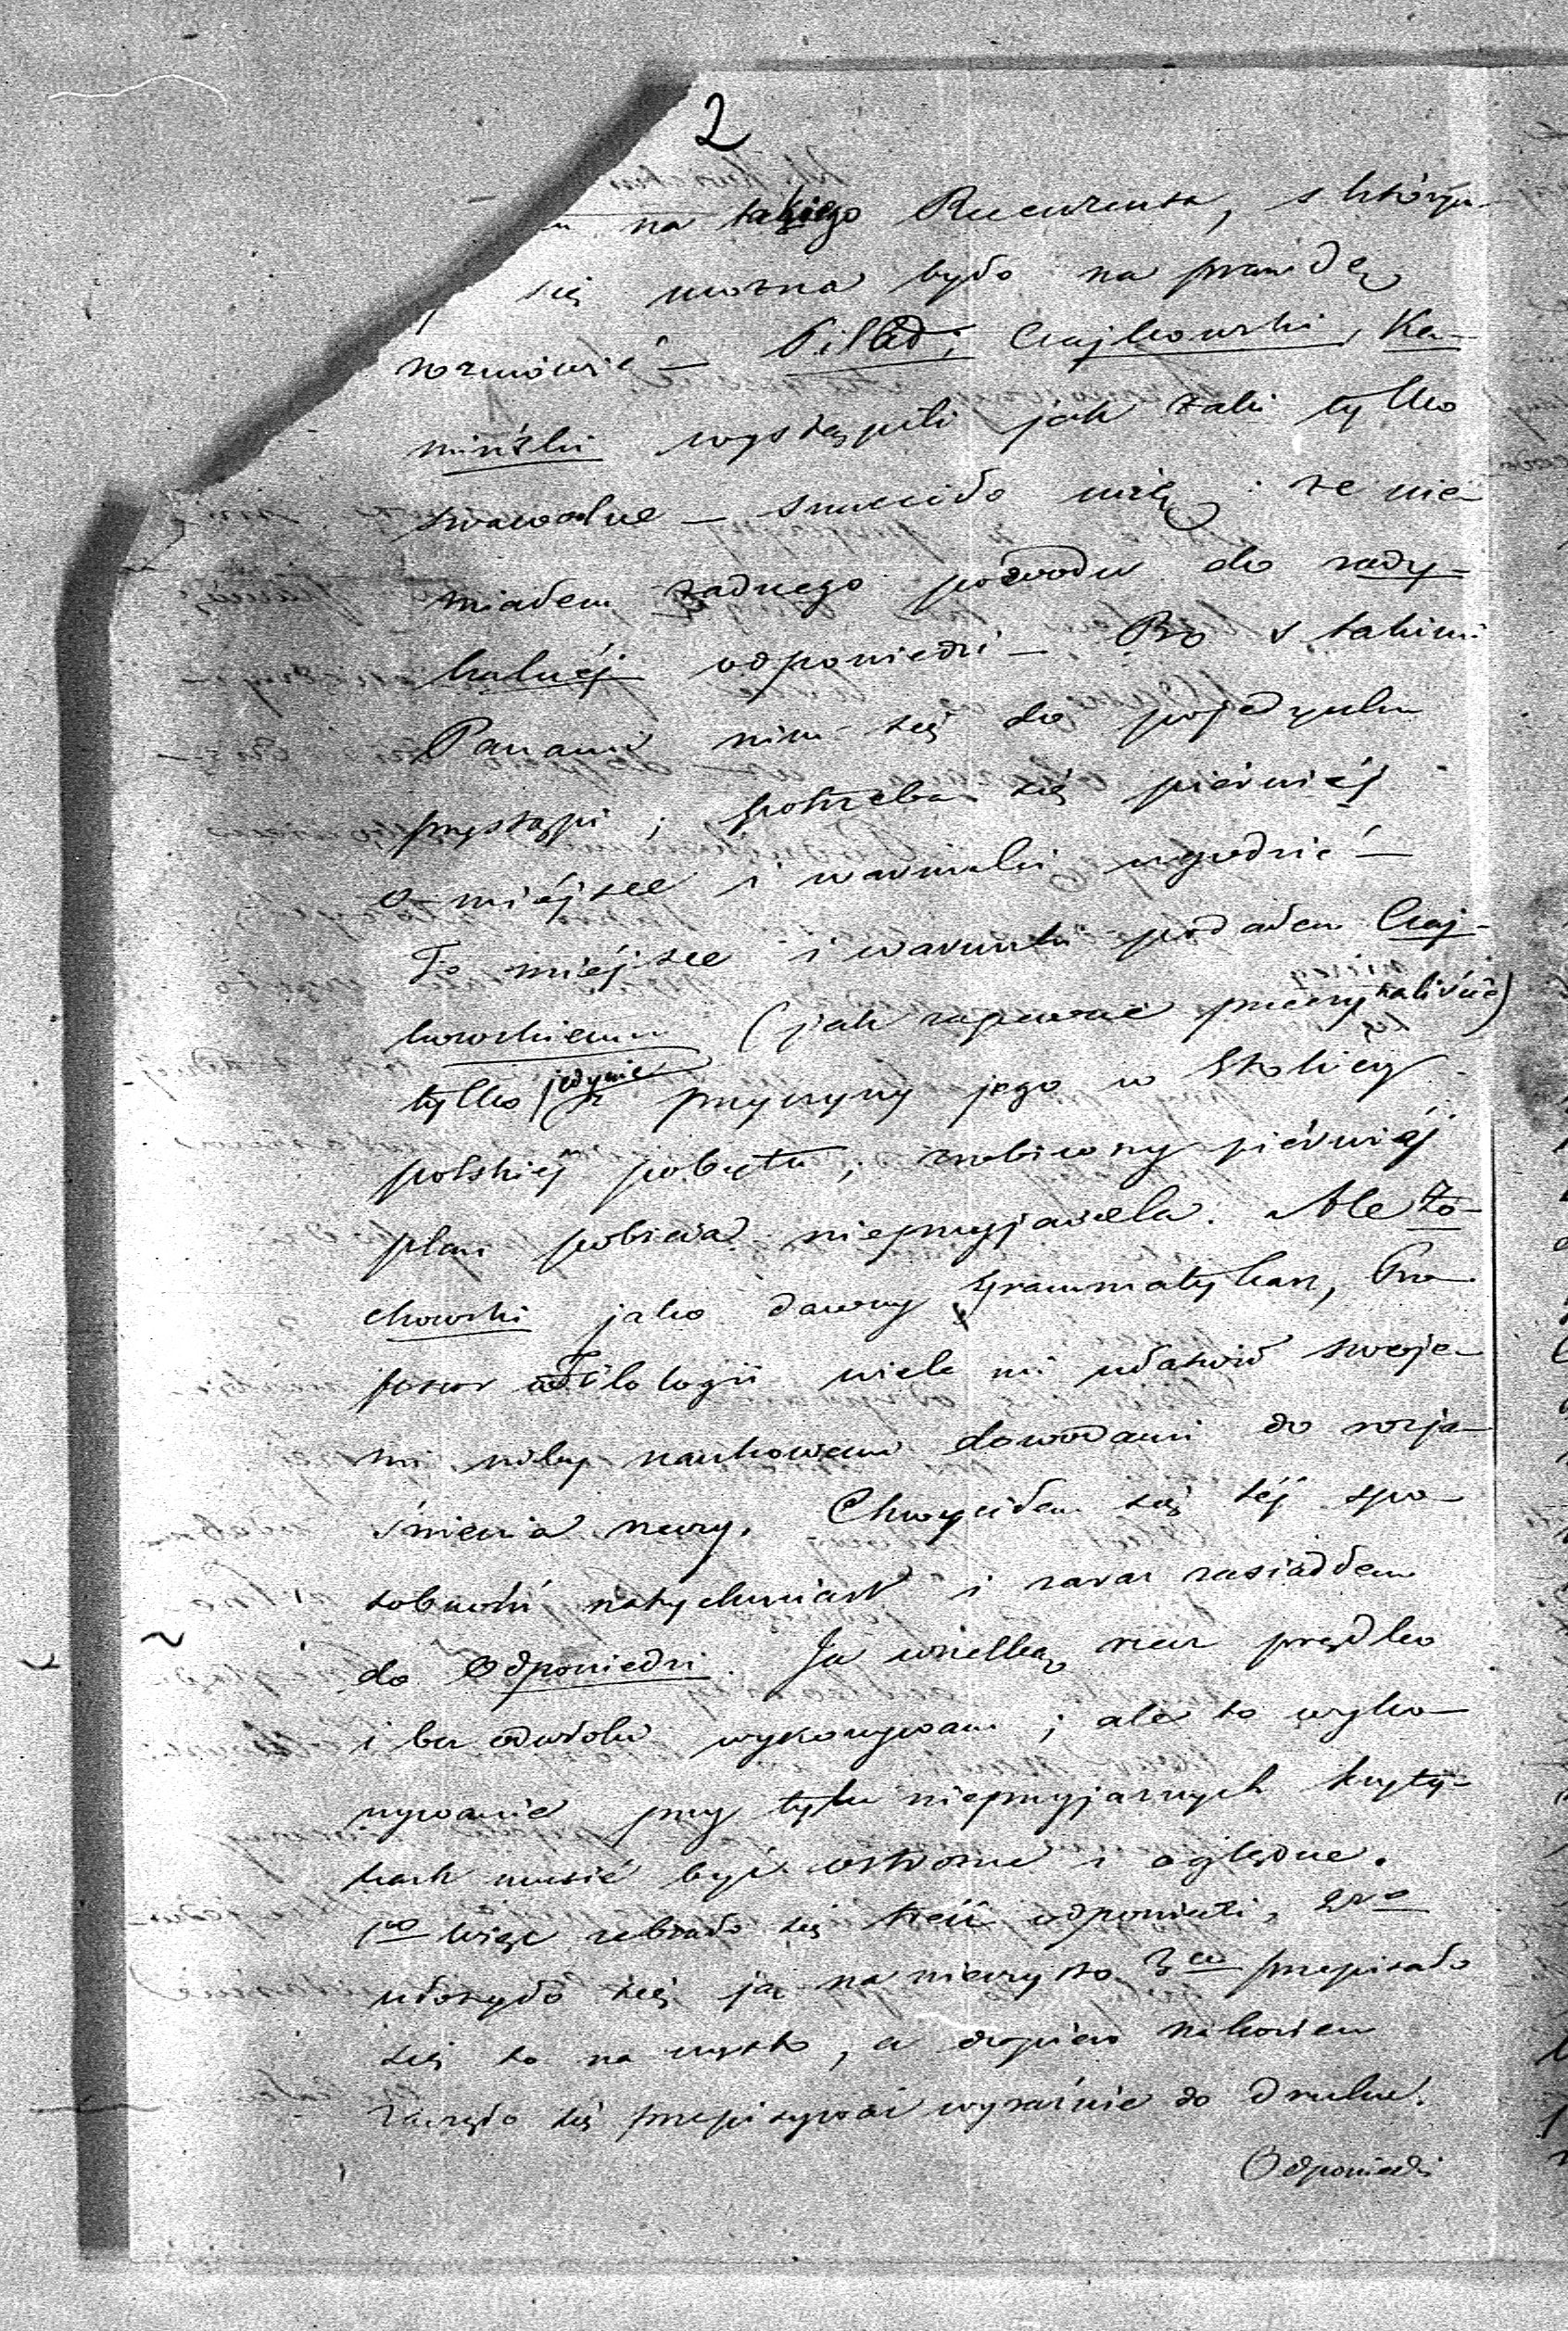 2
na takiego Recenzenta, s którym
się można było na prawdę
rozmówić — Pillad; Czajkowski, Ka-
miński wystąpili jak żaki tylko
swawolne — smuciło mię: że nie
miałem żadnego powodu do rady-
kalnéj odpowiedzi — Bo s takimi
Panami nim się do pojedynku
przystąpi; potrzeba się piérwiéj
o miéjsce i warunki ugodzić —
To miéjsce i warunki podałem Czaj-
kowskiemu (jak zapewne przeczytaliście)
tylko jedynie z przyczyny jego w Stolicy
polskiéj pobytu; zrobiwszy piérwiéj
plan pobicia nieprzyjaciela. Ale Żo-
chowski jako dawny Grammatykarz, Pro-
fessor Filologii wiele mi ułatwił swoje-
mi niby naukowemi dowodami do rozja-
śnienia rzeczy. Chwyciłem się téj spo-
sobności natychmiast i zaraz zasiadłem
do Odpowiedzi. Ja wszelką rzecz prędko
i bez odwłoki wykonywam; ale to wyko-
nywanie przy tylu nieprzyjaznych kryty-
kach musić być ostrożne i oględne.
1o więc zebrało się treść odpowiedzi, 2do
ułożyło się ją na nieczysto 3cio przepisało
się to na czysto, a dopiero nakoniec
zaczęło się przepisywać wyraźnie do druku.
Odpowiedź